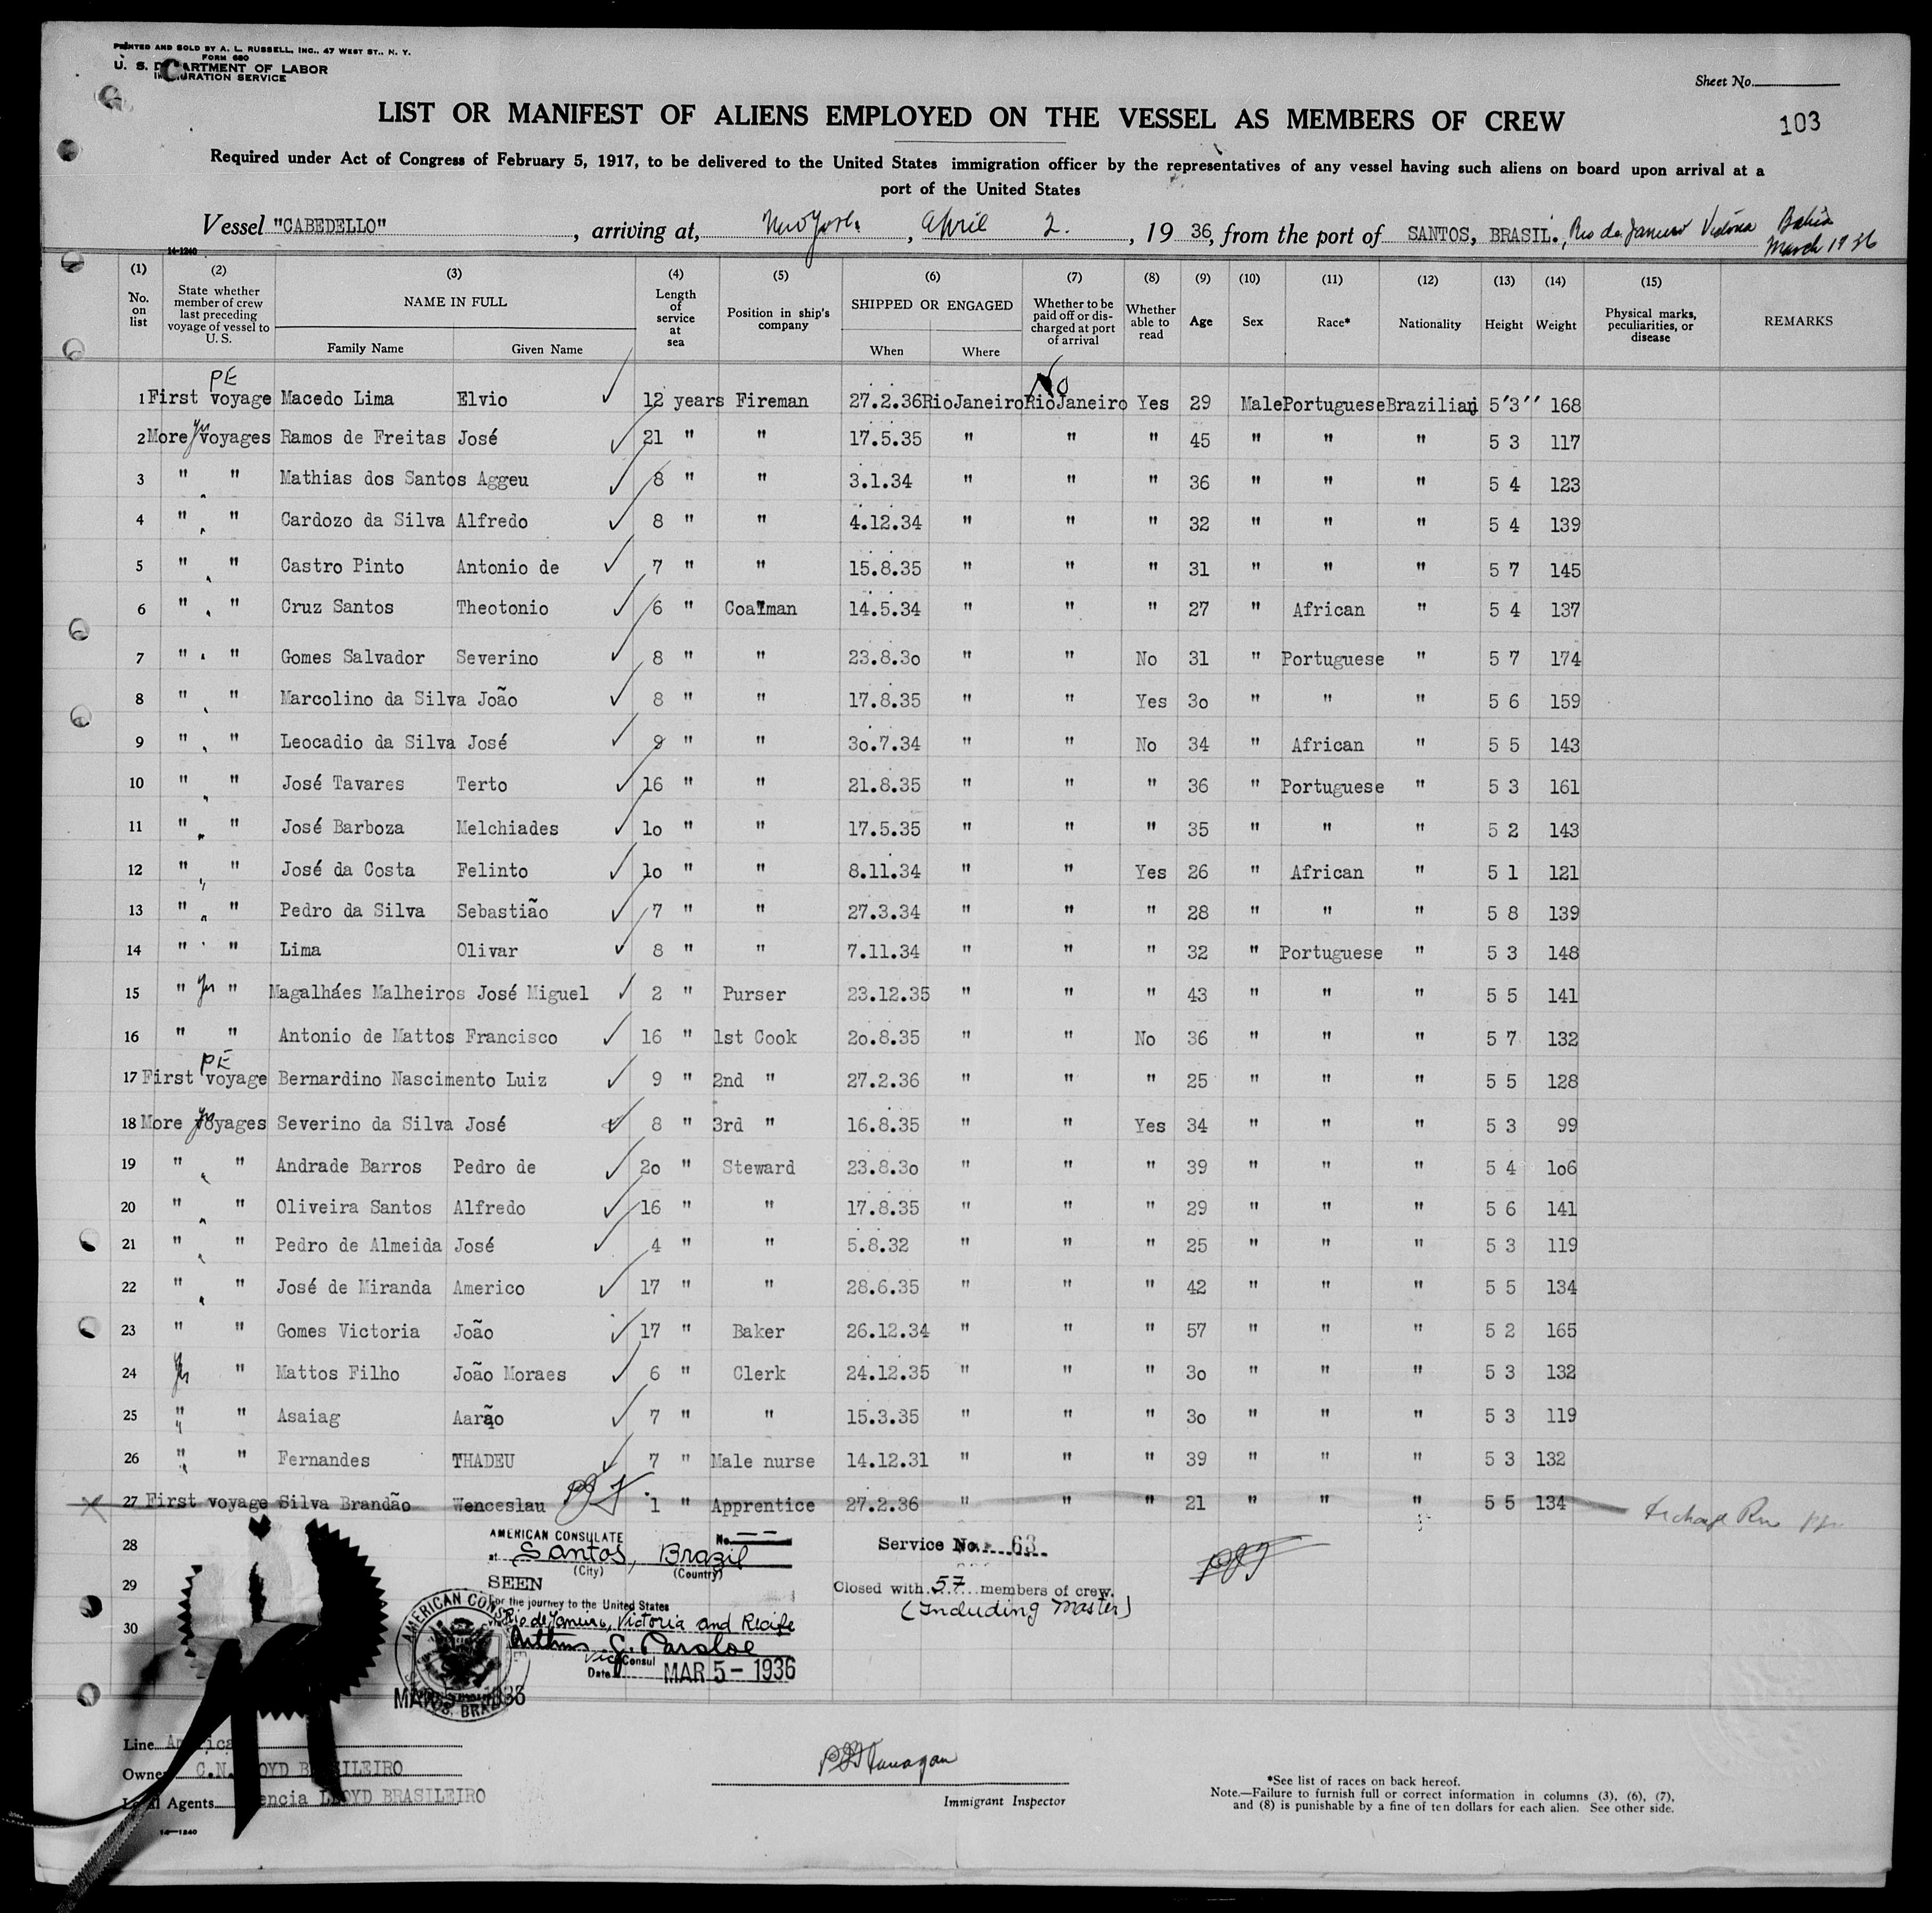 PRINTED AND SOLD BY A. L. RUSSELL, INC., 47 WEST ST., N. Y.
FORM 680
U. S. DEPARTMENT OF LABOR
IMMIGRATION SERVICE
Sheet No.
LIST OR MANIFEST OF ALIENS EMPLOYED ON THE VESSEL AS MEMBERS OF CREW
103
Required under Act of Congress of February 5, 1917, to be delivered to the United States immigration officer by the representatives of any vessel having such aliens on board upon arrival at a
port of the United States
Vessel "CABEDELLO", arriving at, New York, April 2., 1936, from the port of SANTOS, BRASIL., Rio de Janeiro Victoria Bahia
March 1936
14-1240
(1) (2) (3) (4) (5) (6) (7) (8) (9) (10) (11) (12) (13) (14) (15)
No. on list | State whether member of crew last preceding voyage of vessel to U. S. | NAME IN FULL | Length of service at sea | Position in ship's company | SHIPPED OR ENGAGED | Whether to be paid off or discharged at port of arrival | Whether able to read | Age | Sex | Race* | Nationality | Height | Weight | Physical marks, peculiarities, or disease | REMARKS
Family Name | Given Name | When | Where
PE No
1 First voyage Macedo Lima Elvio 12 years Fireman 27.2.36 RioJaneiro RioJaneiro Yes 29 Male Portuguese Brazilian 5'3'' 168
2 More voyages Ramos de Freitas José 21 " " 17.5.35 " " " 45 " " " 5 3 117
3 " " Mathias dos Santos Aggeu 8 " " 3.1.34 " " " 36 " " " 5 4 123
4 " " Cardozo da Silva Alfredo 8 " " 4.12.34 " " " 32 " " " 5 4 139
5 " " Castro Pinto Antonio de 7 " " 15.8.35 " " " 31 " " " 5 7 145
6 " " Cruz Santos Theotonio 6 " Coalman 14.5.34 " " " 27 " African " 5 4 137
7 " " Gomes Salvador Severino 8 " " 23.8.3o " " No 31 " Portuguese " 5 7 174
8 " " Marcolino da Silva João 8 " " 17.8.35 " " Yes 3o " " " 5 6 159
9 " " Leocadio da Silva José 9 " " 3o.7.34 " " No 34 " African " 5 5 143
10 " " José Tavares Terto 16 " " 21.8.35 " " " 36 " Portuguese " 5 3 161
11 " " José Barboza Melchiades 1o " " 17.5.35 " " " 35 " " " 5 2 143
12 " " José da Costa Felinto 1o " " 8.11.34 " " Yes 26 " African " 5 1 121
13 " " Pedro da Silva Sebastião 7 " " 27.3.34 " " " 28 " " " 5 8 139
14 " " Lima Olivar 8 " " 7.11.34 " " " 32 " Portuguese " 5 3 148
15 " " Magalháes Malheiros José Miguel 2 " Purser 23.12.35 " " " 43 " " " 5 5 141
16 " " Antonio de Mattos Francisco 16 " 1st Cook 2o.8.35 " " No 36 " " " 5 7 132
PE
17 First voyage Bernardino Nascimento Luiz 9 " 2nd " 27.2.36 " " " 25 " " " 5 5 128
18 More voyages Severino da Silva José 8 " 3rd " 16.8.35 " " Yes 34 " " " 5 3 99
19 " " Andrade Barros Pedro de 2o " Steward 23.8.3o " " " 39 " " " 5 4 1o6
20 " " Oliveira Santos Alfredo 16 " " 17.8.35 " " " 29 " " " 5 6 141
21 " " Pedro de Almeida José 4 " " 5.8.32 " " " 25 " " " 5 3 119
22 " " José de Miranda Americo 17 " " 28.6.35 " " " 42 " " " 5 5 134
23 " " Gomes Victoria João 17 " Baker 26.12.34 " " " 57 " " " 5 2 165
24 " Mattos Filho João Moraes 6 " Clerk 24.12.35 " " " 3o " " " 5 3 132
25 " " Asaiag Aarão 7 " " 15.3.35 " " " 3o " " " 5 3 119
26 " " Fernandes THADEU 7 " Male nurse 14.12.31 " " " 39 " " " 5 3 132
27 First voyage Silva Brandão Wenceslau 1 " Apprentice 27.2.36 " " " 21 " " " 5 5 134
28
29
30
AMERICAN CONSULATE No.
at Santos, Brazil
(City) (Country)
SEEN
For the journey to the United States
Rio de Janeiro, Victoria and Recife
Vice Consul
Date MAR 5 - 1936
AMERICAN CONSULATE
SANTOS, BRAZIL
Service No. 63
Closed with 57 members of crew.
(Including Master)
Line America
Owner C.N. LLOYD BRASILEIRO
Local Agents Agencia LLOYD BRASILEIRO
14-1240
Immigrant Inspector
*See list of races on back hereof.
Note.—Failure to furnish full or correct information in columns (3), (6), (7),
and (8) is punishable by a fine of ten dollars for each alien. See other side.